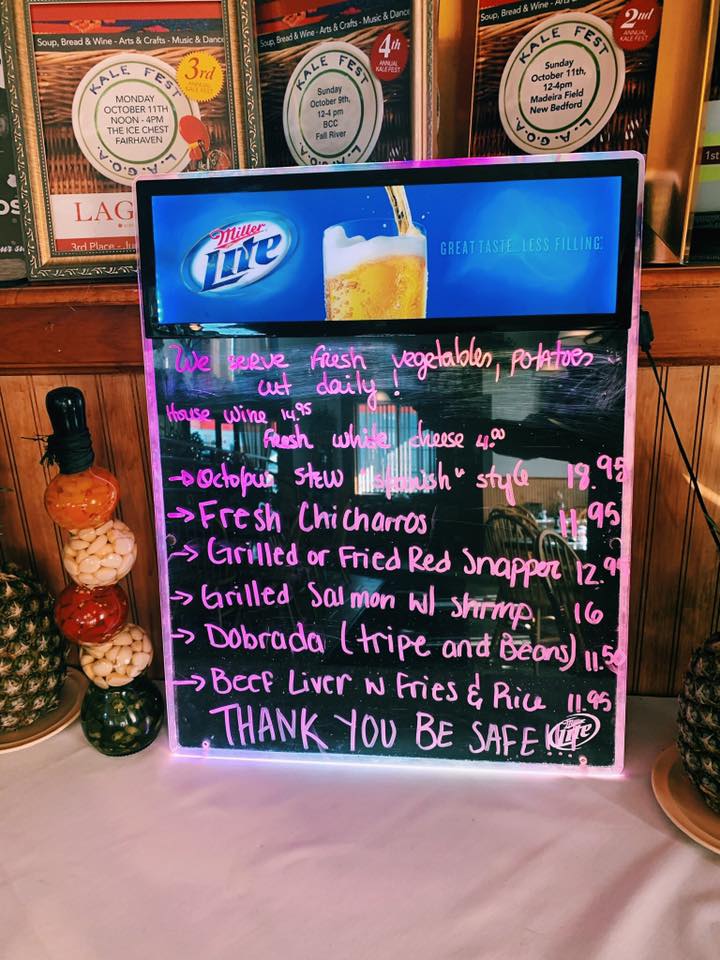 Soup, Bread & Wine - Arts & Crafts - Music & Dance
3rd
ANNUAL
KALE FEST
KALE FEST
MONDAY
OCTOBER 11TH
NOON - 4PM
THE ICE CHEST
FAIRHAVEN
L.A.G.O.A.
LAG
3rd Place -
Soup, Bread & Wine - Arts & Crafts - Music & Dance
4th
ANNUAL
KALE FEST
KALE FEST
Sunday
October 9th,
12-4 pm
BCC
Fall River
L.A.G.O.A.
Soup, Bread & Wine - Arts & Crafts - Music & Dance
2nd
ANNUAL
KALE FEST
KALE FEST
Sunday
October 11th,
12-4pm
Madeira Field
New Bedford
L.A.G.O.A.
1st
Miller
Lite
GREAT TASTE...LESS FILLING.
We serve fresh vegetables, potatoes
cut daily!
House Wine 14.95
Fresh white cheese 4.00
→ Octopus stew spanish" style 18.95
→ Fresh Chicharros 11.95
→ Grilled or Fried Red Snapper 12.9
→ Grilled Salmon w/ shrimp 16
→ Dobrada (tripe and Beans) 11.50
→ Beef Liver w Fries & Rice 11.95
THANK YOU BE SAFE!!
Miller
Lite